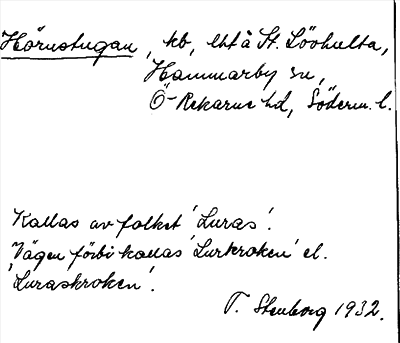 Hörnstugan, kb, lht å St. Lövhulta,
Hammarby sn,
Ö-Rekarne hd, Söderm. l.
Kallas av folket 'Luras'.
Vägen förbi kallas 'Lurkroken' el.
'Luraskroken'.
T. Stenborg 1932.